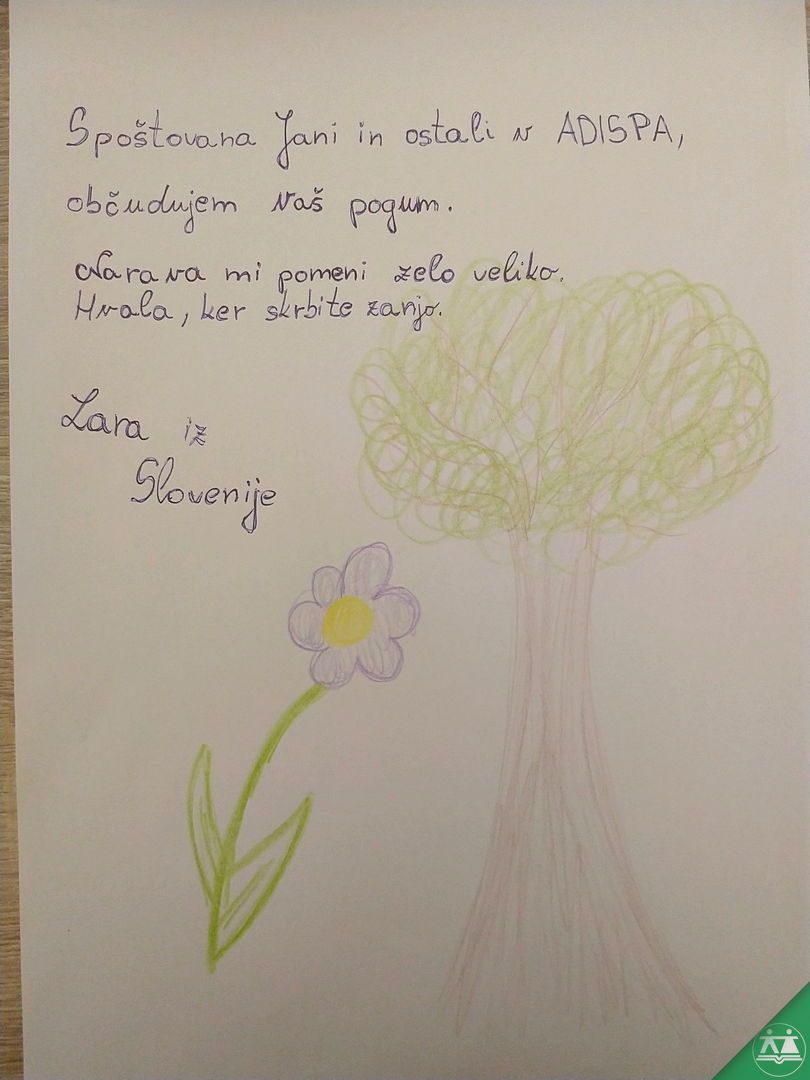 Spoštovana Jani in ostali v ADISPA,
občudujem Vaš pogum.
Narava mi pomeni zelo veliko.
Hvala, ker skrbite zanjo.
Lara iz
Slovenije